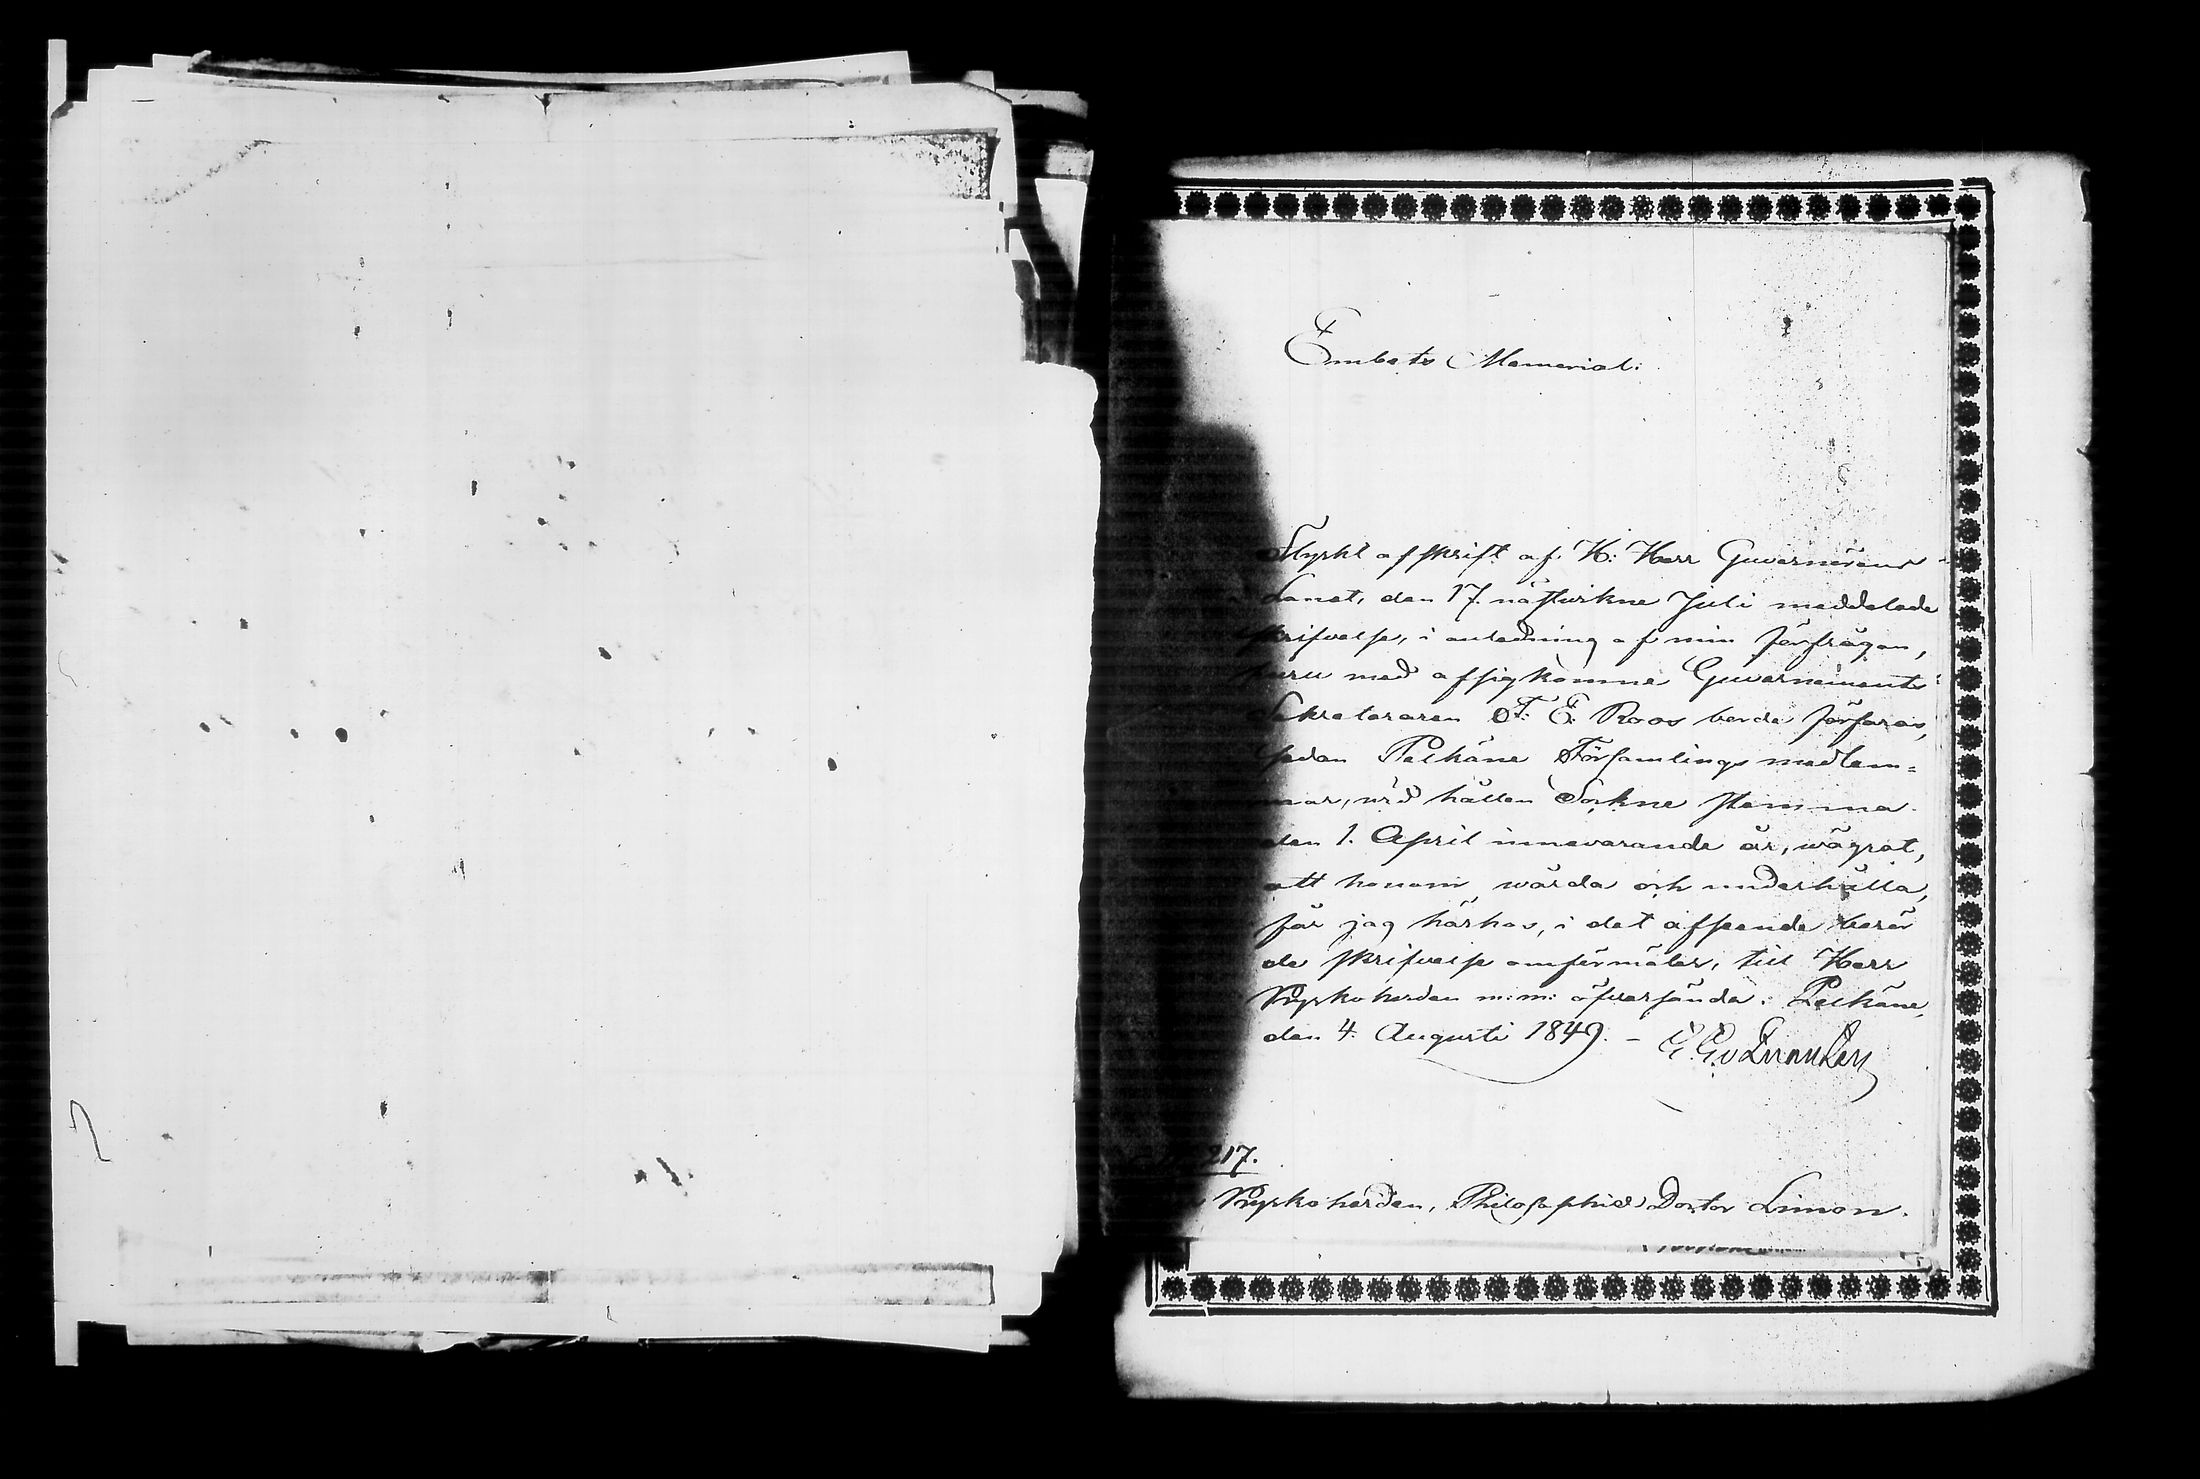 Embets Memorial.
Styrkt affskrift af H: Herr Guvernörens
Länet, den 17. nästvikne Juli meddelade
skrifvelse, i anledning af min förfrågan,
huru med afsigkomne Guvernements
Sekreteraren F. E. Roos borde förfaras,
sedan Pelkäne Församlings medlem=
mar, wid hållen Sockne stemma
den 1. April innevarande år, wägrat,
att honom wårda och underhålla,
får jag härhos, i det afseende berör
de skrifvelse omförmäler, till Herr
Kyrkoherden m: m: öfversända. Pelkäne,
den 4. Augusti 1849. –
217.
Kyrkoherden, Philosophiæ Doctor Limon.